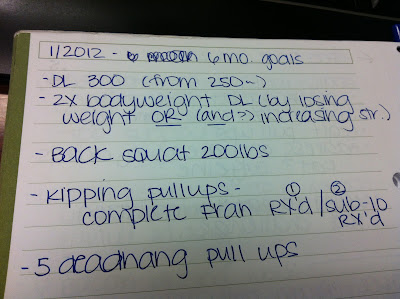 1/2012 - 6 mo. goals
- DL 300 (from 250~)
- 2X bodyweight DL (by losing
weight OR (and?) increasing str.)
- Back squat 200lbs
- Kipping pullups -
① ②
complete Fran RX'd / sub-10
RX'd
- 5 deadhang pull ups